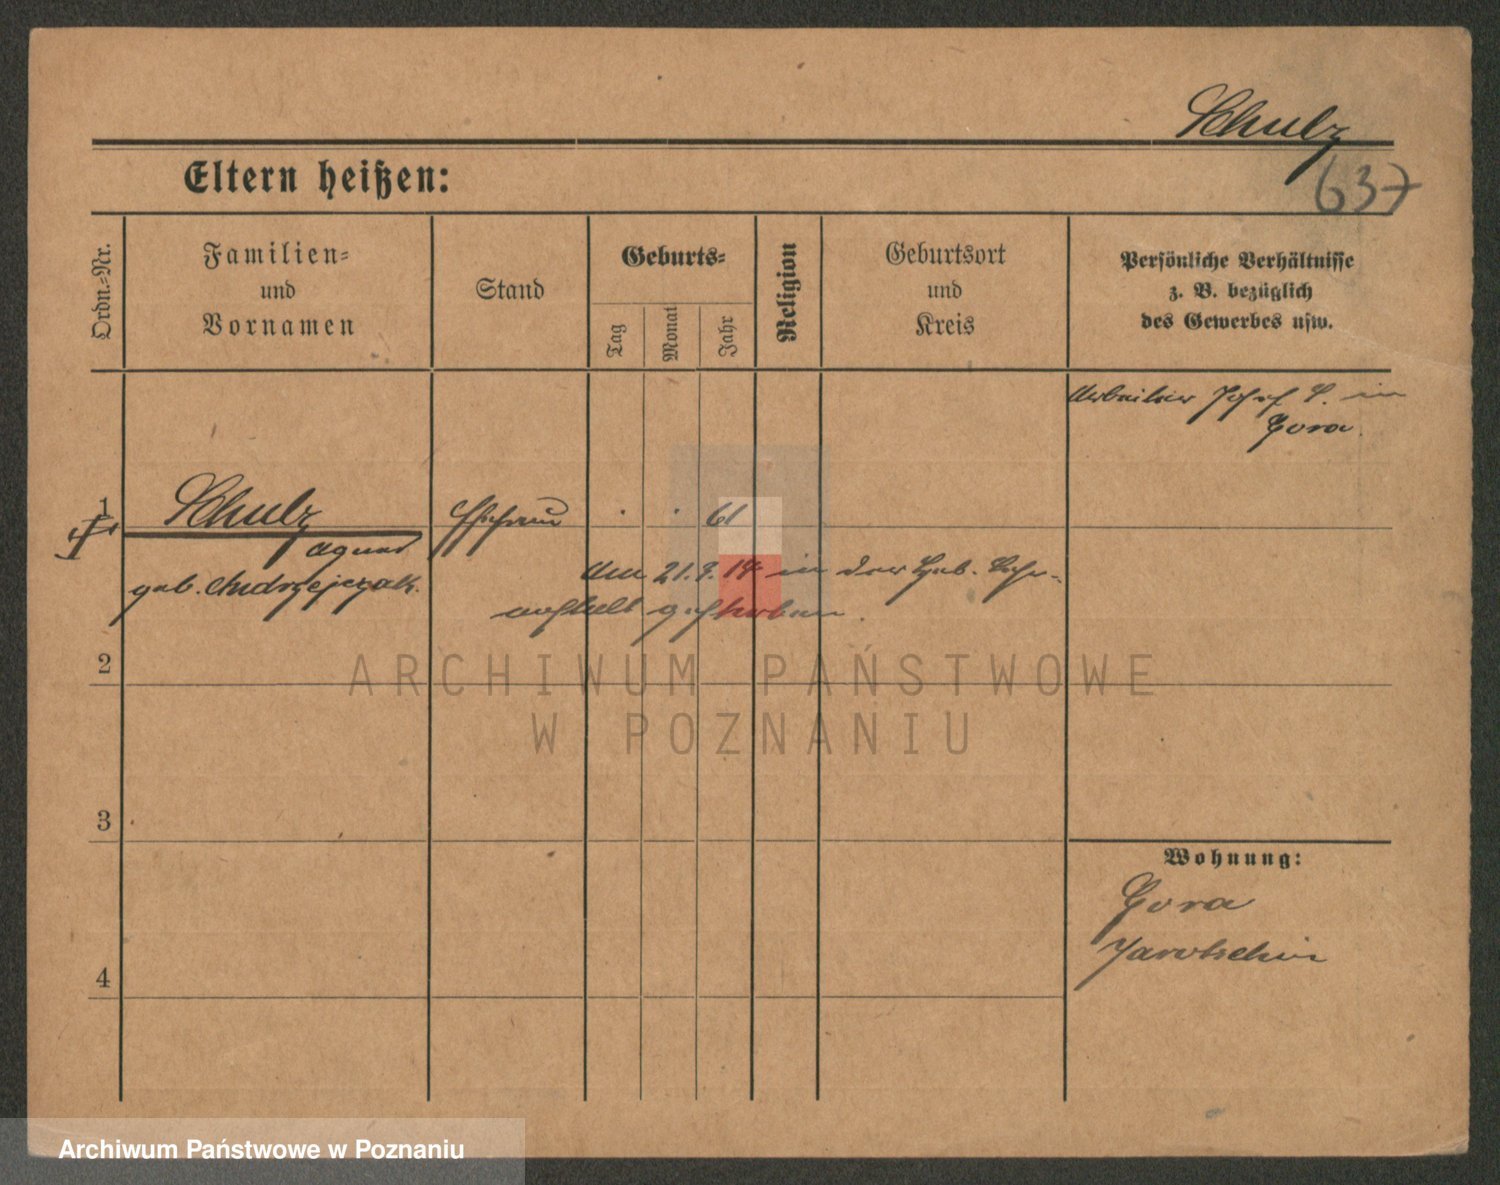 Schulz
637
Eltern heißen:
Ordn.-Nr.
Familien-
und
Vornamen
Stand
Geburts-
Tag
Monat
Jahr
Religion
Geburtsort
und
Kreis
Persönliche Verhältnisse
z. B. bezüglich
des Gewerbes usw.
Arbeiter Josef S. in
Gora.
1
Schulz
Agnes
geb. Andrzejczak.
Ehefrau
. . 61
Am 21. 9. 14 in der Heb. Lehr-
anstalt gestorben.
2
ARCHIWUM PAŃSTWOWE
W POZNANIU
3
Wohnung:
Gora
Jarotschin
4
Archiwum Państwowe w Poznaniu